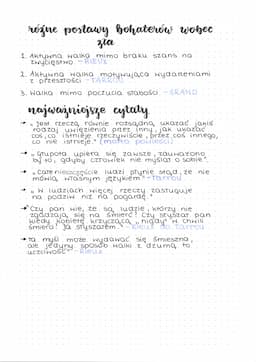 różne postawy bohaterów wobec
zła
1. Aktywna walka mimo braku szans na
zwycięstwo - RIEUX
2. Aktywna walka motywująca wydarzeniami
z przeszłości - TARROU
3. Walka mimo poczucia słabości - GRAND
najważniejsze cytaty
→ „Jest rzeczą równie rozsądną ukazać jakiś
rodzaj uwięzienia przez inny, jak ukazać
coś, co istnieje rzeczywiście, przez coś innego,
co nie istnieje." (motto powieści)
→ „Głupota upiera się zawsze, zauważono
by to, gdyby człowiek nie myślał o sobie".
→ „Całe nieszczęście ludzi płynie stąd, że nie
mówią własnym językiem" - Tarrou
→ „W ludziach więcej rzeczy zasługuje
na podziw niż na pogardę."
→ "Czy pan wie, że są ludzie, którzy nie
zgadzają się na śmierć? Czy słyszał pan
kiedy kobietę krzyczącą „nigdy" w chwili
śmierci? Ja słyszałem." - Rieux do Tarrou
→ ta myśl może wydawać się śmieszna,
ale jedyny sposób walki z dżumą to
uczciwość" - Rieux